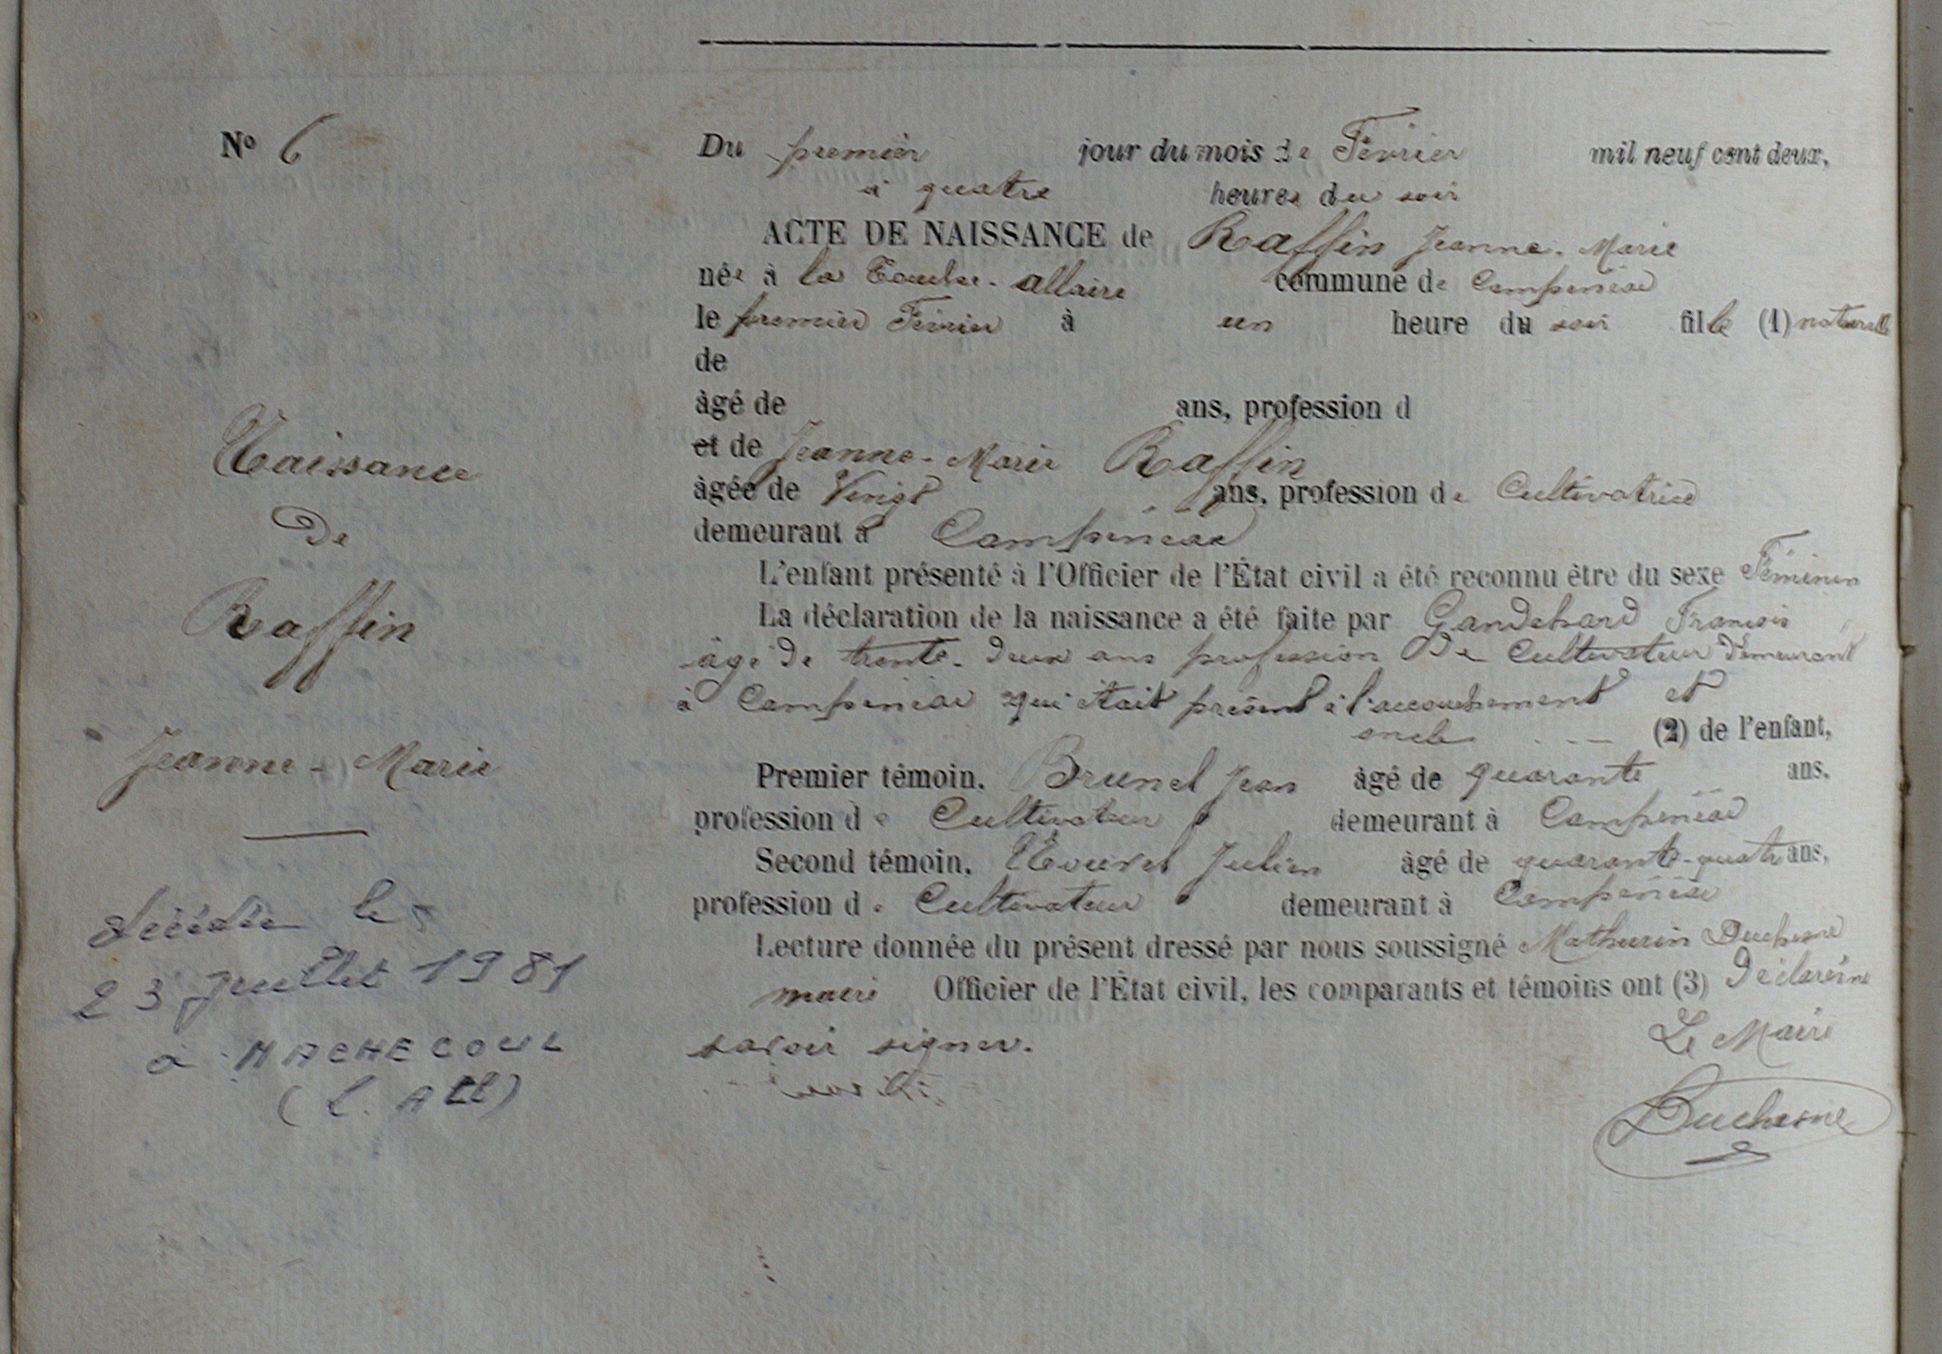 N° 6
Du premier jour du mois de Février mil neuf cent deux,
à quatre heures du soir
ACTE DE NAISSANCE de Raffin Jeanne-Marie
née à la allaire commune de Campénéac
le premier Février à un heure du soir fille (1) naturelle
de
âgé de ans, profession d
et de Jeanne-Marie Raffin
âgée de Vingt ans, profession de Cultivatrice
demeurant à Campénéac
L'enfant présenté à l'Officier de l'État civil a été reconnu être du sexe Féminin
La déclaration de la naissance a été faite par François
âgé de trente-deux ans profession de Cultivateur demeurant
à Campénéac qui était présent à l'accouchement et
oncle (2) de l'enfant,
Premier témoin, Brunel Jean âgé de quarante ans,
profession de Cultivateur demeurant à Campénéac
Second témoin, Julien âgé de quarante-quatre ans,
profession de Cultivateur demeurant à Campénéac
Lecture donnée du présent dressé par nous soussigné Mathurin Duchesne
maire Officier de l'État civil, les comparants et témoins ont (3) déclaré ne
savoir signer.
Le Maire
Duchesne
Naissance
de
Raffin
Jeanne-Marie
décédée le
23 Juillet 1981
à MACHECOUL
(L. Atl)